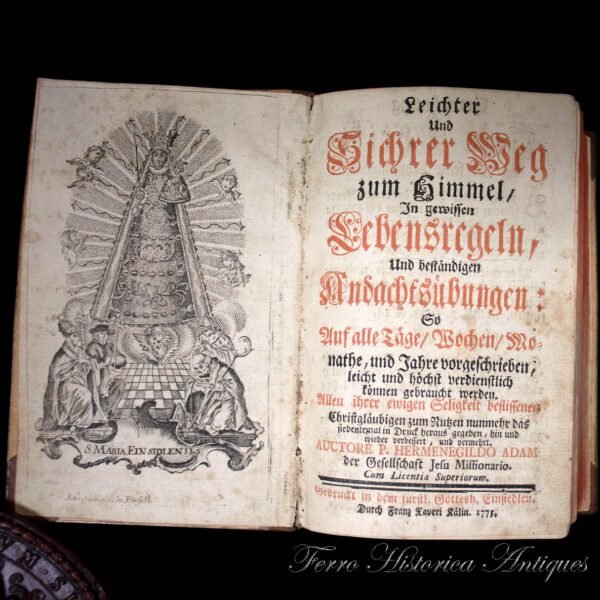 S. MARIA EINSIDLENSIS.
Leichter
Und
Sichrer Weg
zum Himmel/
In gewissen
Lebensregeln,
Und beständigen
Andachtsübungen:
So
Auf alle Täge/ Wochen/ Mo-
nathe, und Jahre vorgeschrieben/
leicht und höchst verdienstlich
können gebraucht werden.
Allen ihrer ewigen Seligkeit beflissenen
Christgläubigen zum Nutzen nunmehr das
siebentemal in Druck heraus gegeben, hin und
wieder verbessert, und vermehrt.
AUCTORE P. HERMENEGILDO ADAM
der Gesellschaft Jesu Missionario.
Cum Licentia Superiorum.
Gedruckt in dem fürstl. Gottesh. Einsiedlen,
Durch Franz Xaveri Kälin. 1775.
Ferro Historica Antiques